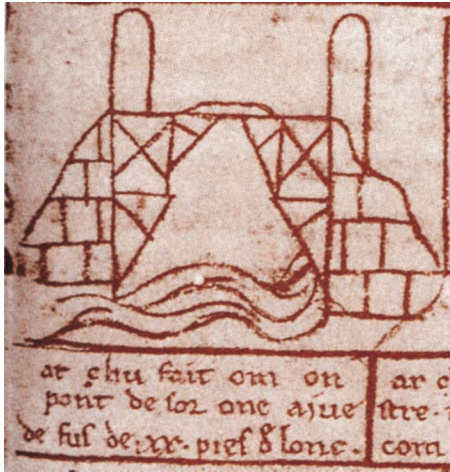 ar chu fait om on
pont de sor one aiue
de fus de .xx. pies d lonc.
ar c
stre.
cora